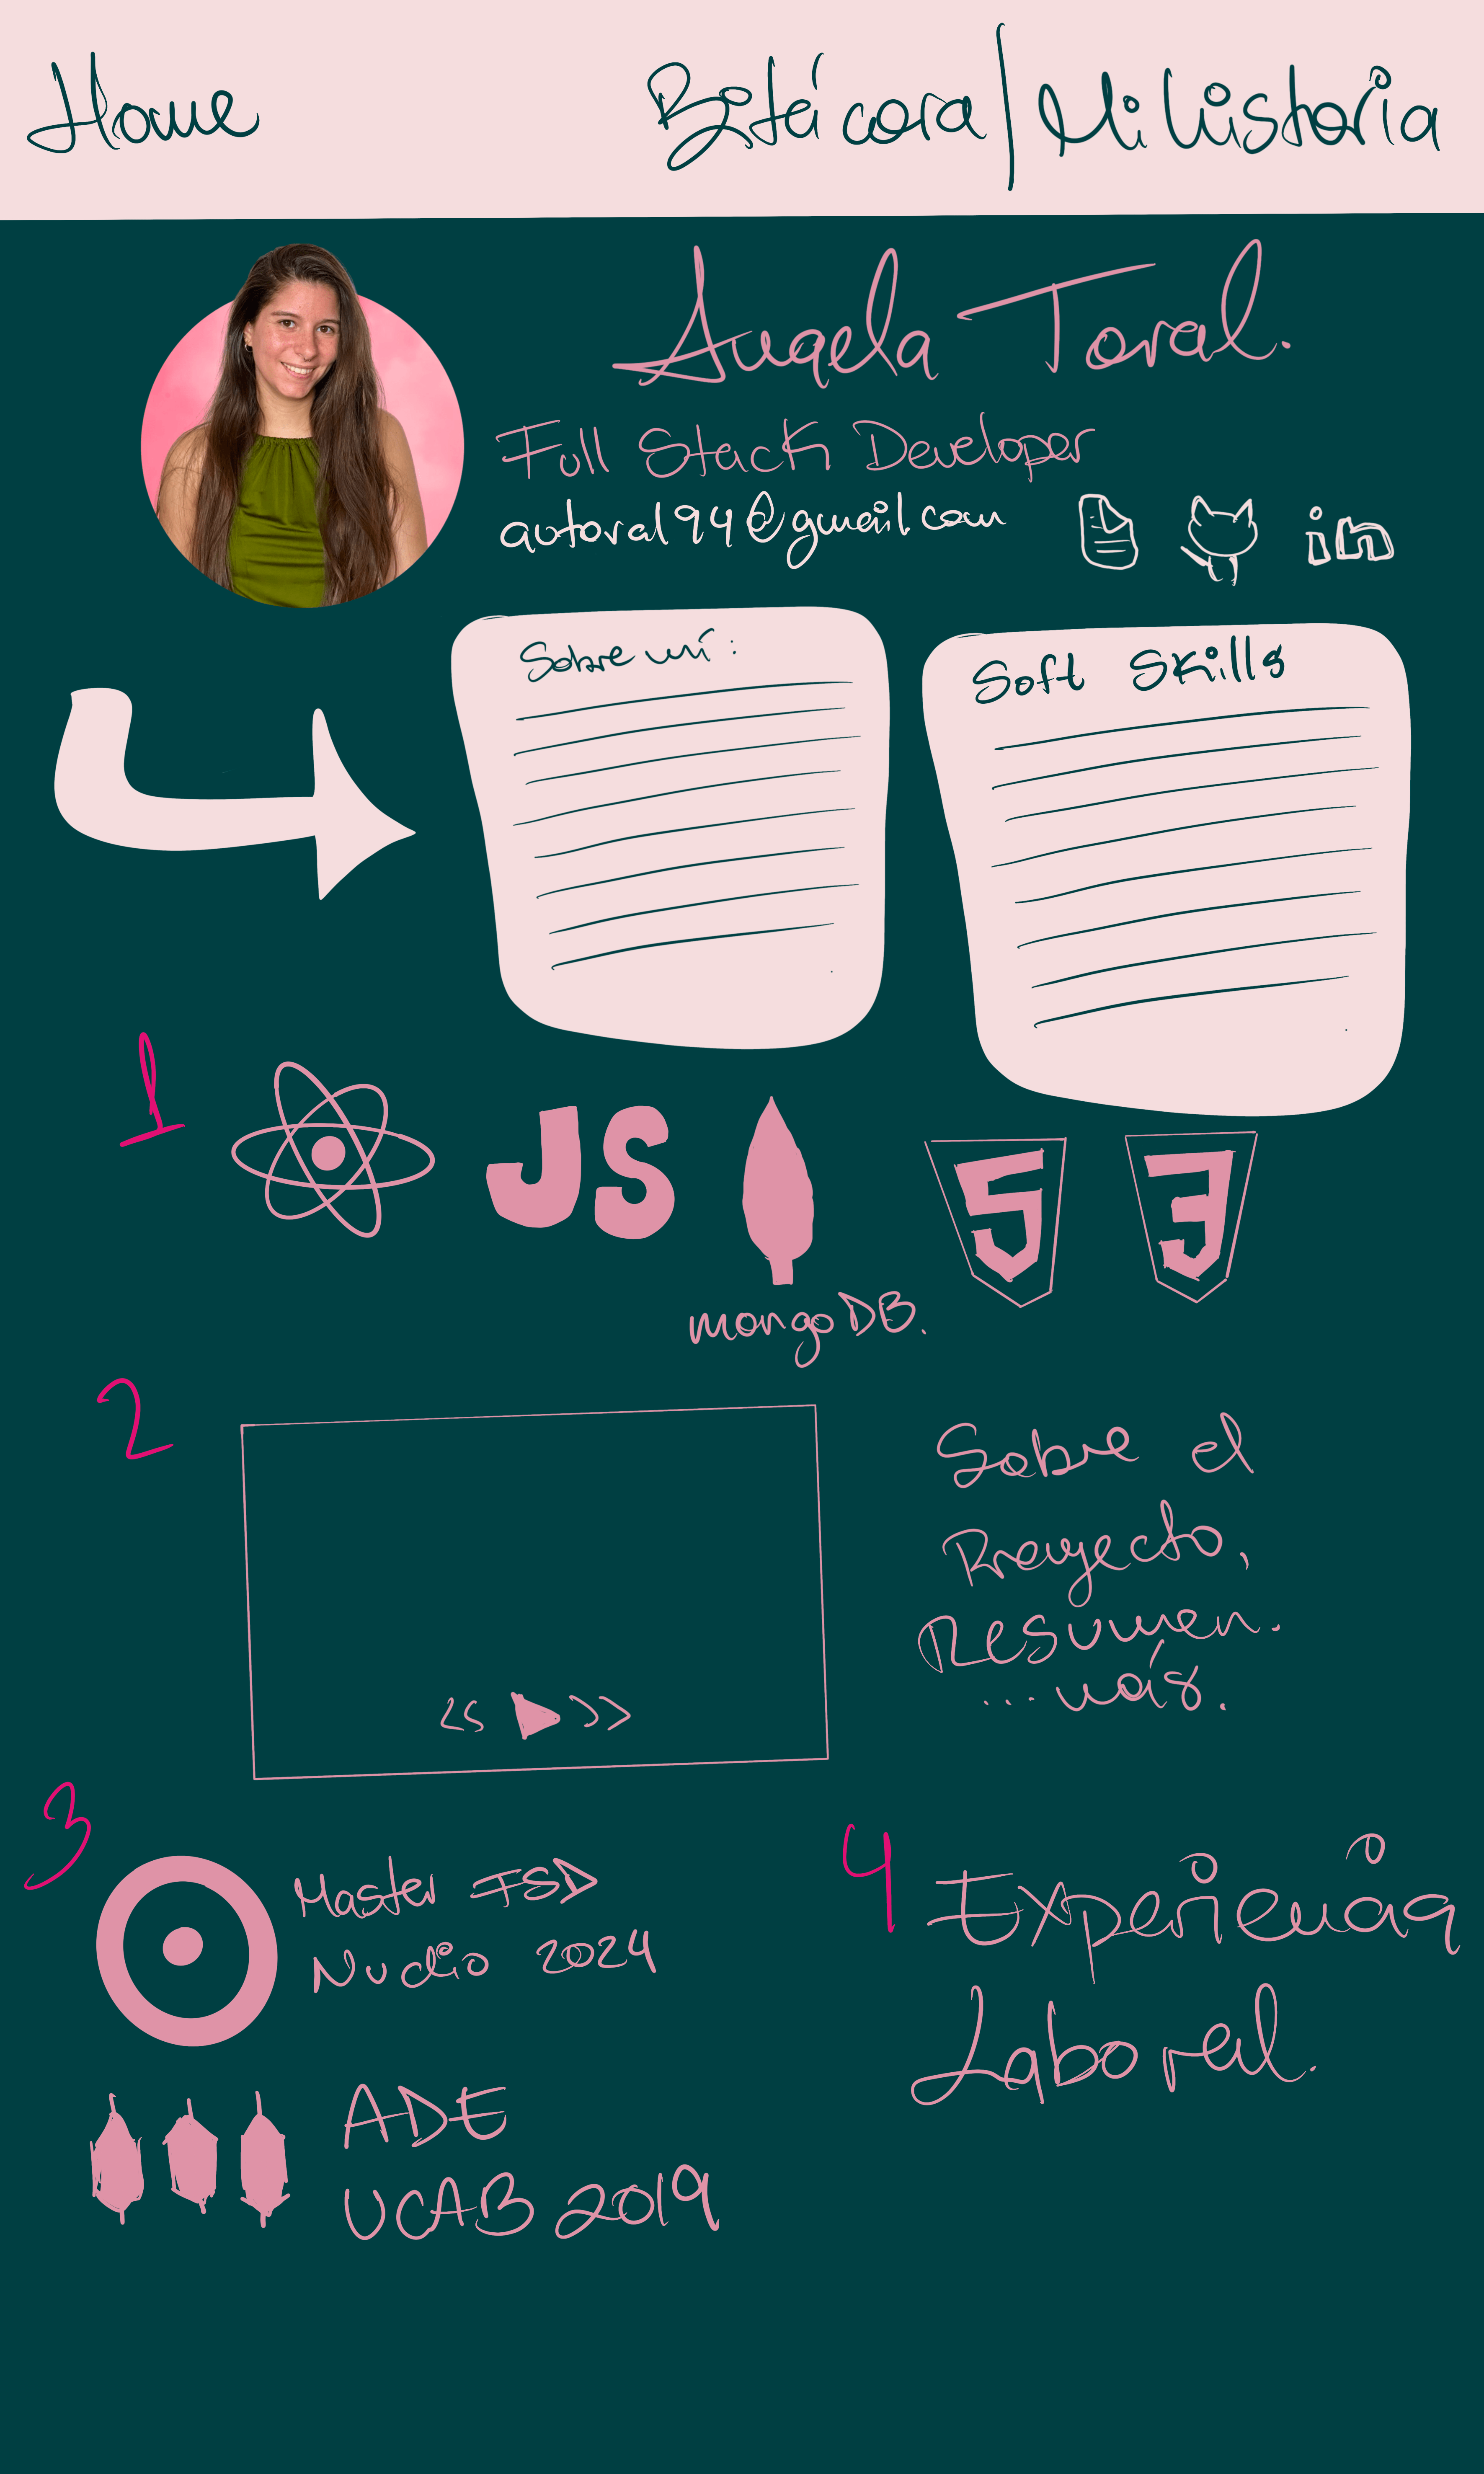 Home
Bitácora/Mi historia
Angela Toral.
Full Stack Developer
autoral94@gmail.com
in
Sobre mí:
Soft Skills
1
JS
5
3
mongoDB.
2
Sobre el
Proyecto,
Resumen.
...más.
<< >>
3
Master FSD
Nudio 2024
4
Experiencia
Laboral.
ADE
UCAB 2019